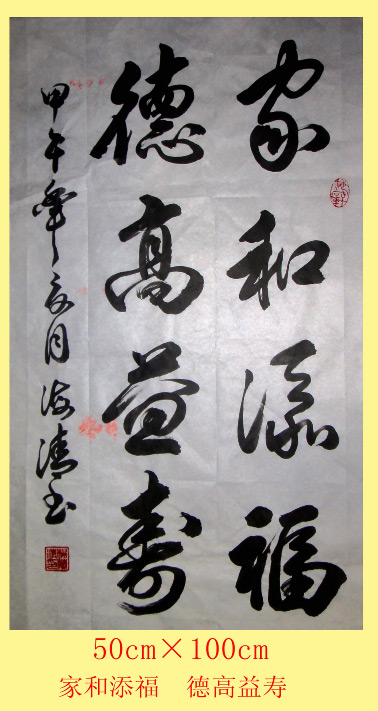 家和添福
德高益寿
甲午年 月海清
50cm×100cm
家和添福 德高益寿